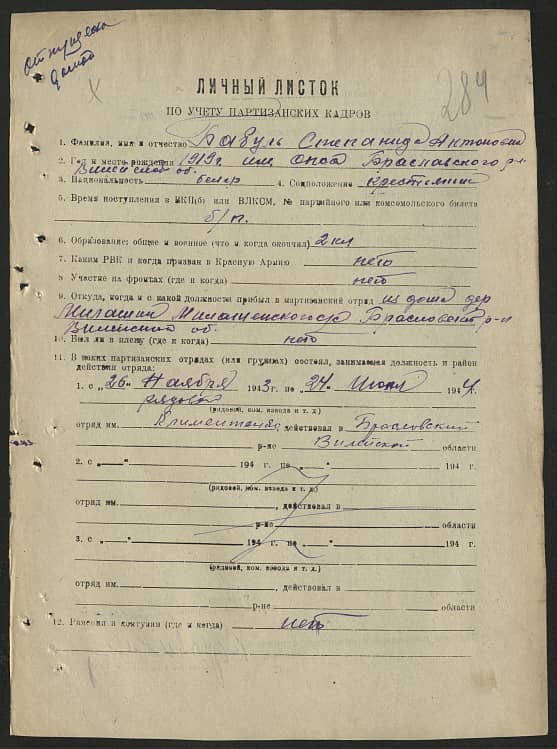 отпущена
домой
284
ЛИЧНЫЙ ЛИСТОК
ПО УЧЕТУ ПАРТИЗАНСКИХ КАДРОВ
1. Фамилия, имя и отчество Бабуль Степанида Антоновна
2. Год и место рождения 1919 г. Браславского р-н
Вилейской об.
3. Национальность белар 4. Соцположение крестьянин
5. Время поступления в ВКП(б) или ВЛКСМ, № партийного или комсомольского билета
б/п.
6. Образование: общее и военное (что и когда окончил) 2 кл
7. Каким РВК и когда призван в Красную Армию нето
8. Участие на фронтах (где и когда) нето
9. Откуда, когда и с какой должности прибыл в партизанский отряд из дома дер
Милашки Браславский р-н
Вилейской об.
10. Был ли в плену (где и когда) нето
11. В каких партизанских отрядах (или группах) состоял, занимаемая должность и район
действия отряда:
1. с „26“ Ноября 1943 г. по „24“ Июля 1944 г.
рядовой
(рядовой, ком. взвода и т. д.)
отряд им. , действовал в Брасловский
р-не Вилейской области
2. с „ “ 194 г. по „ “ 194 г.
(рядовой, ком. взвода и т. д.)
отряд им. , действовал в
р-не области
3. с „ “ 194 г. по „ “ 194 г.
(рядовой, ком. взвода и т. д.)
отряд им. , действовал в
р-не области
12. Ранения и контузии (где и когда) нето